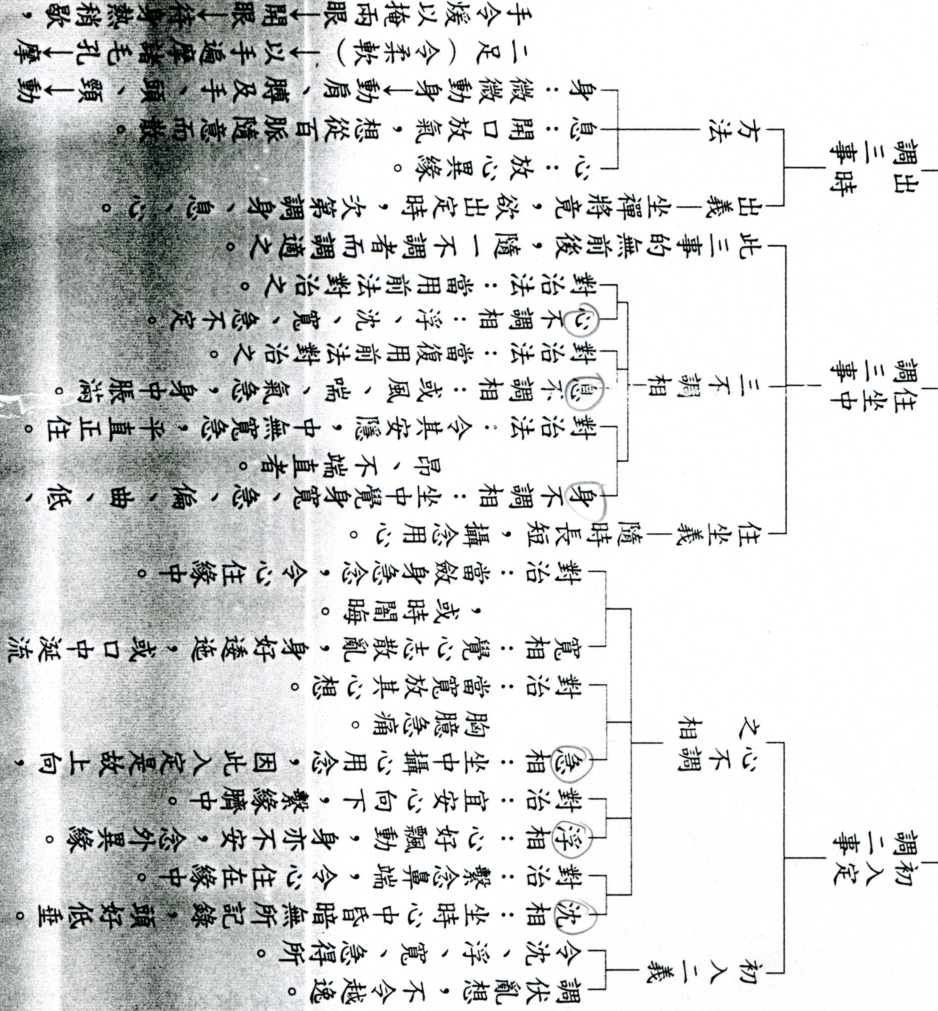 初入定
調二事
初入二義
調伏亂想，不令越逸。
令沈、浮、寬、急得所。
心不調
之相
沈相：坐時心中昏暗無所記錄，頭好低垂。
對治：繫念鼻端，令心住在緣中。
浮相：心好飄動，身亦不安，念外異緣。
對治：宜安心向下，繫緣臍中。
急相：坐中攝心用念，因此入定是故上向，
胸臆急痛。
對治：當寬放其心想。
寬相：覺心志散亂，身好逶迤，或口中涎流
，或時闇晦。
對治：當斂身急念，令心住緣中。
住坐中
調三事
住坐義—隨時長短，攝念用心。
三不調相
身不調相：坐中覺身寬、急、偏、曲、低、
昂、不端直者。
對治法：令其安隱，中無寬急，平直正住。
息不調相：或風、喘、氣急，身中脹滿。
對治法：當復用前法對治之。
心不調相：浮、沈、寬、急不定。
對治法：當用前法對治之。
此三事的無前後，隨一不調者而調適之。
出時
調三事
出義—坐禪將竟，欲出定時，次第調身、息、心。
方法
心：放心異緣。
息：開口放氣，想從百脈隨意而散。
身：微微動身→動肩、膊及手、頭、頸→動
二足（令柔軟）→以手遍摩諸毛孔→摩
手令煖以掩兩眼→開眼→待身熱稍歇，